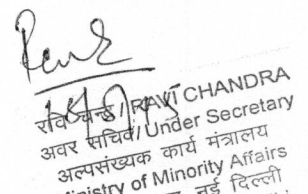 रवि चन्द्र / RAVI CHANDRA
अवर सचिव/Under Secretary
अल्पसंख्यक कार्य मंत्रालय
Ministry of Minority Affairs
नई दिल्ली